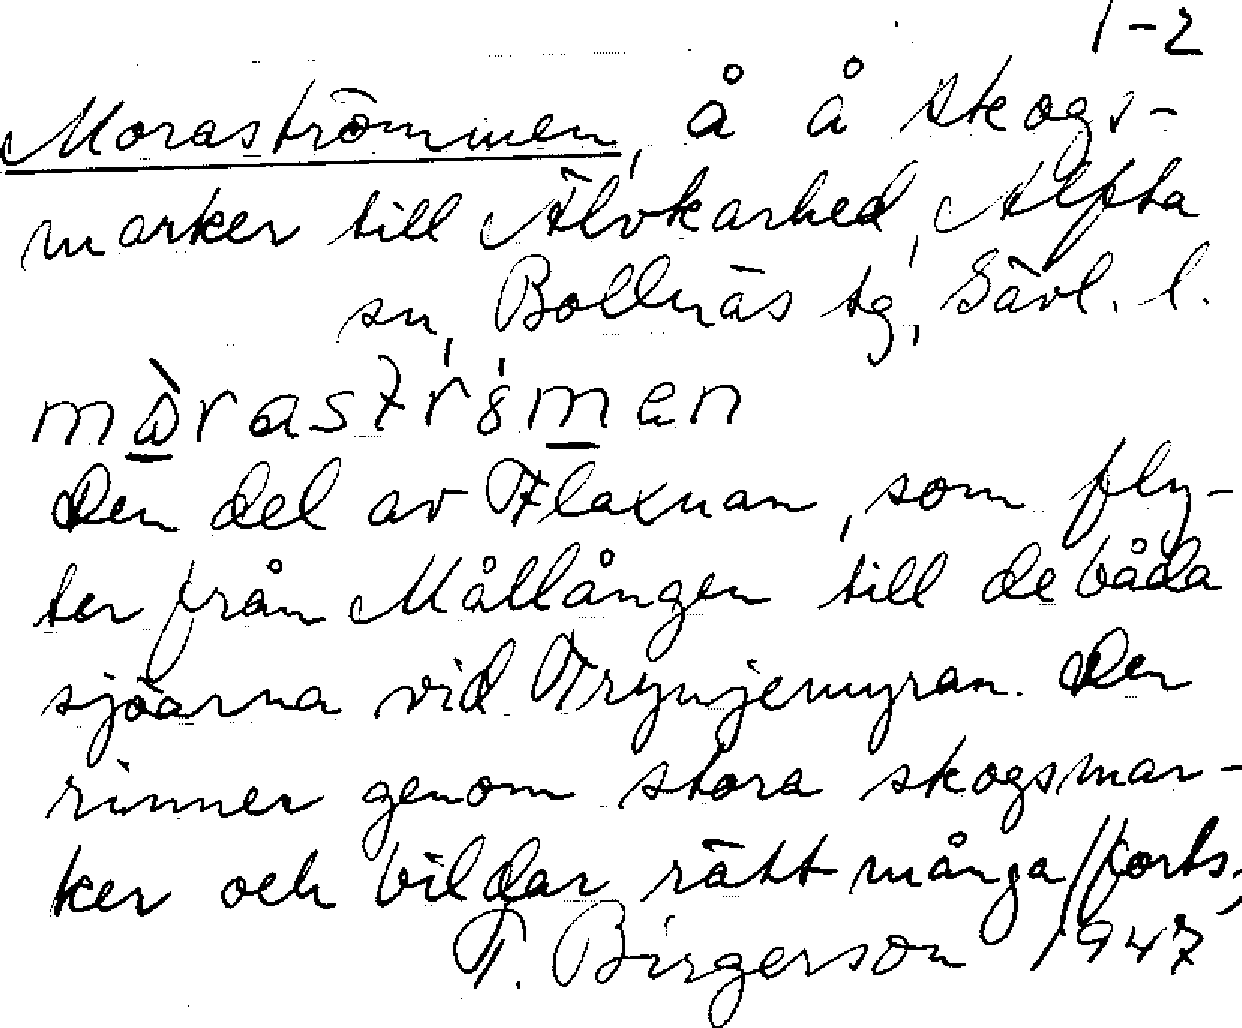 1-2
Moraströmmen, å å skogs-
marker till Älvkarhed, Alfta
sn, Bollnäs tg, Gävl. l.
Den del av Flaxnan, som fly-
ter från Mållången till de båda
sjöarna vid Trynjemyran. Den
rinner genom stora skogsmar-
ker och bildar rätt många /forts.
T. Birgerson 1947